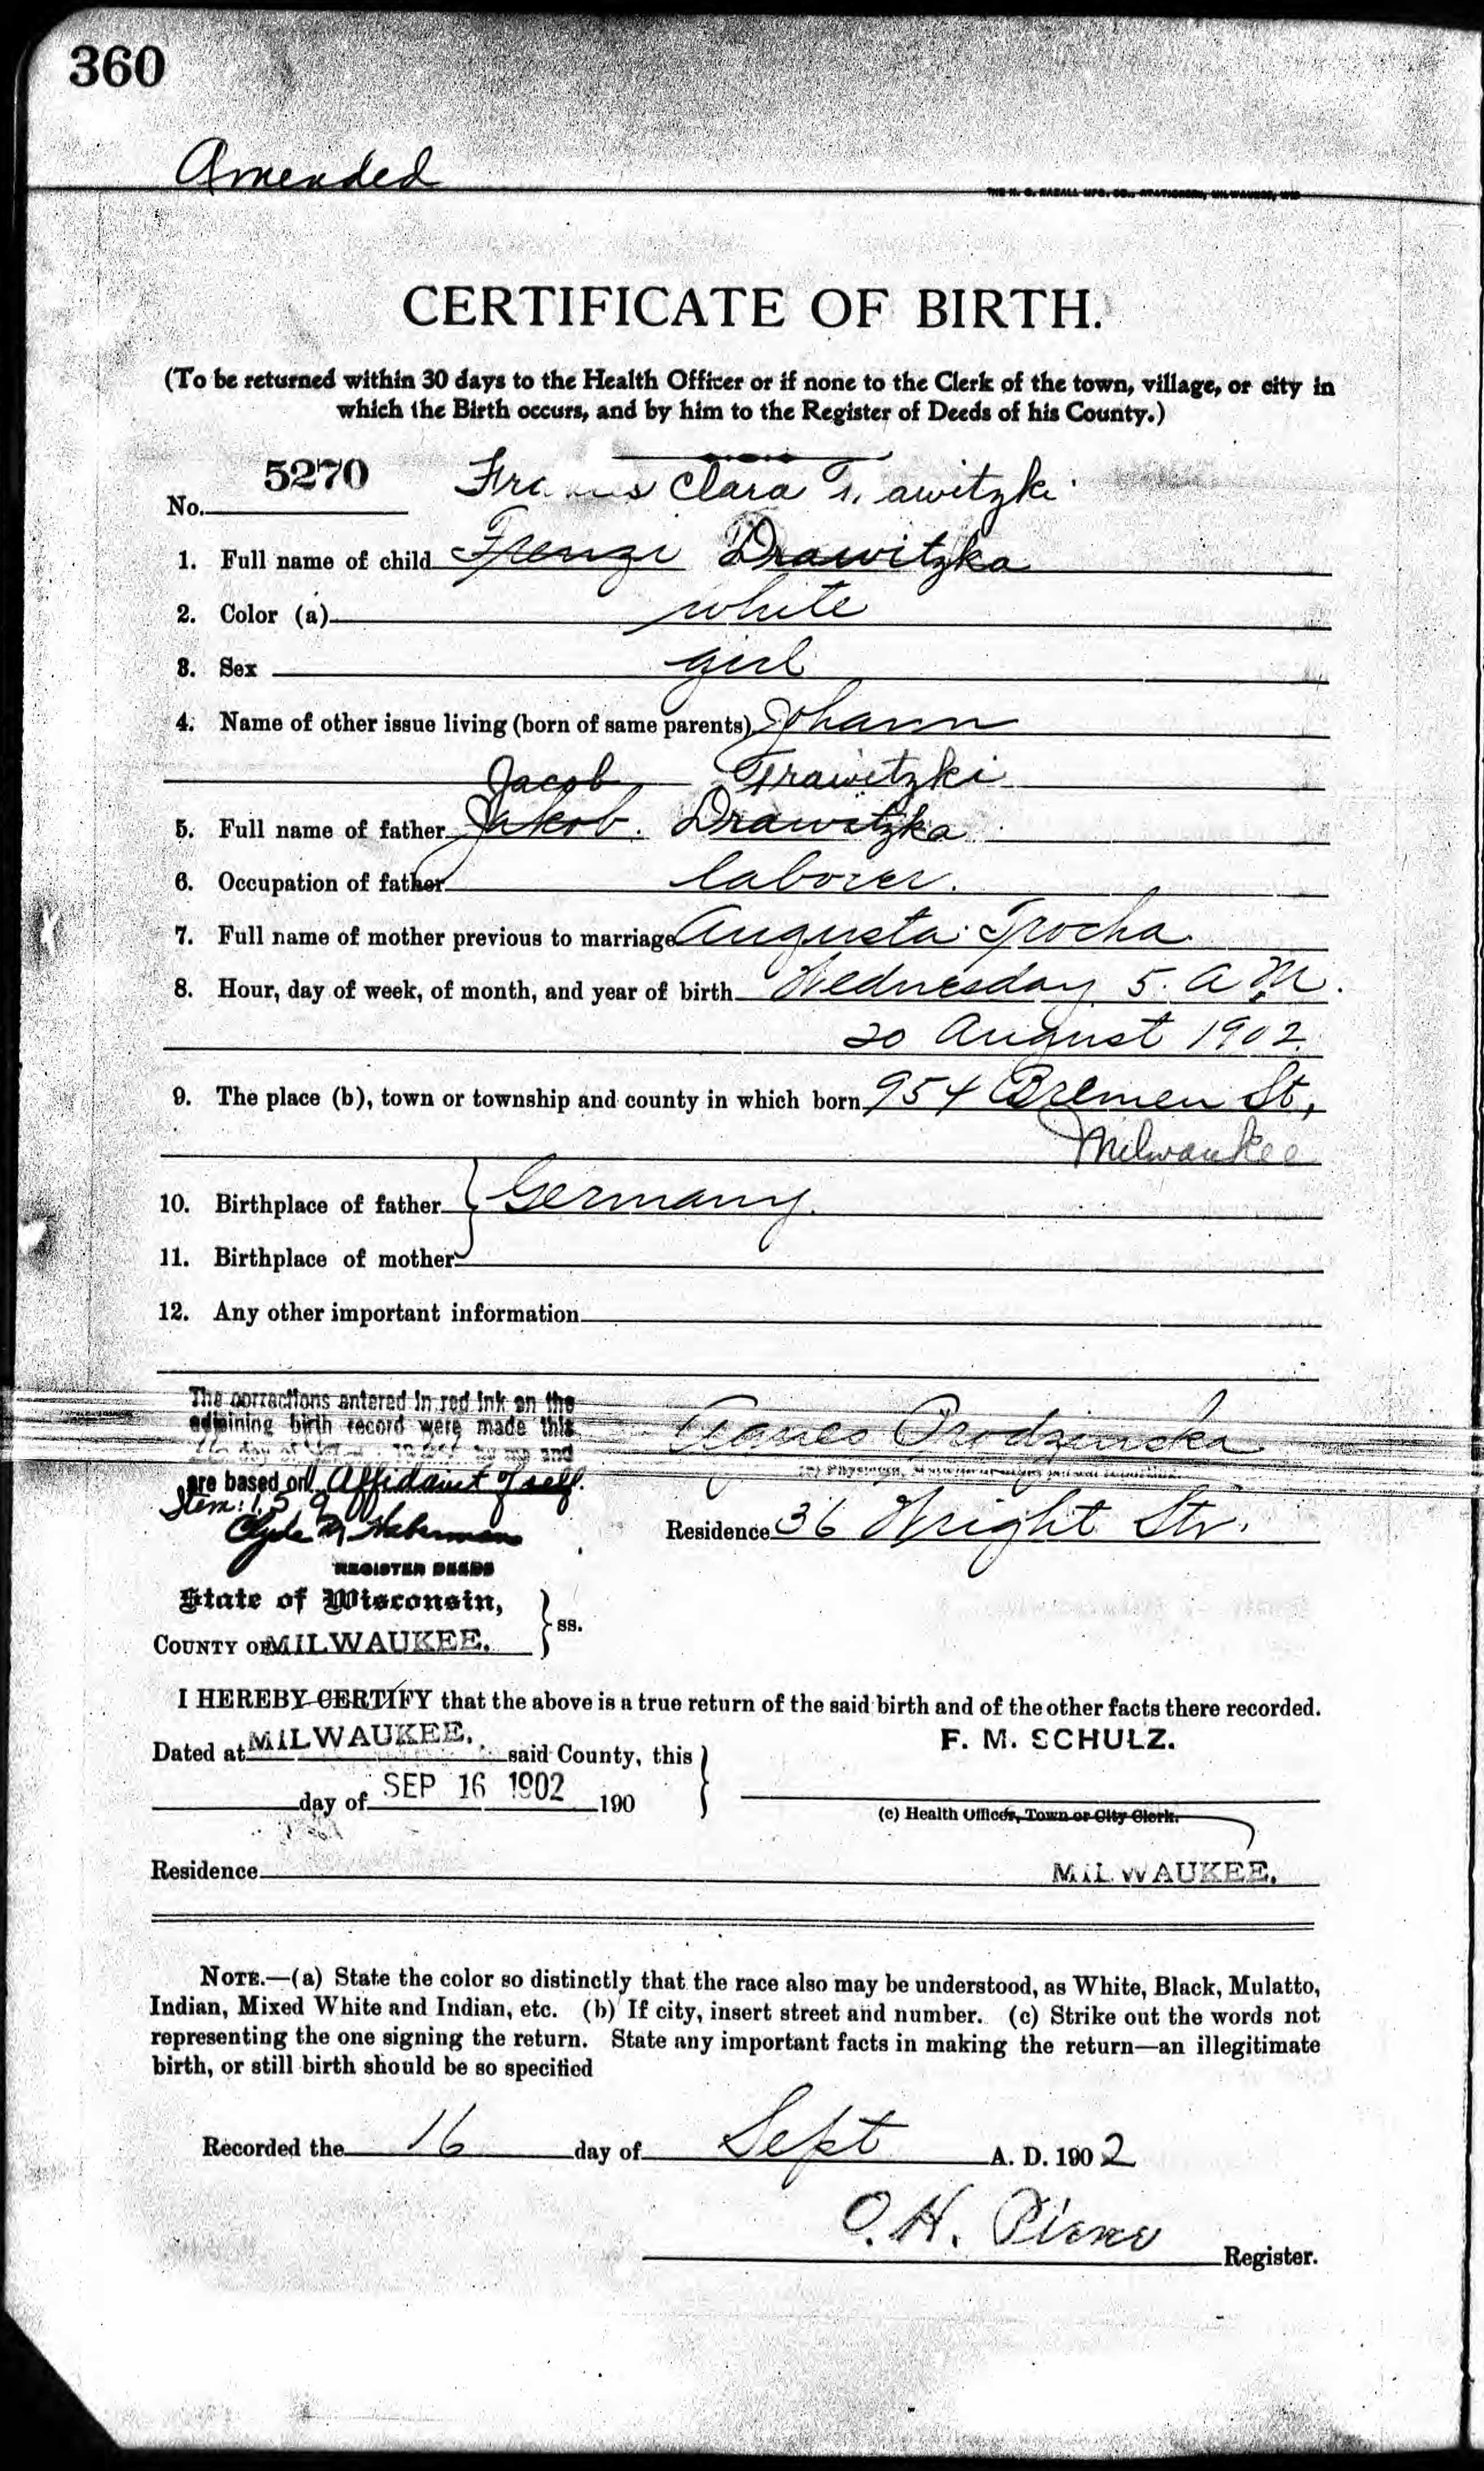 360
Amended
CERTIFICATE OF BIRTH.
(To be returned within 30 days to the Health Officer or if none to the Clerk of the town, village, or city in
which the Birth occurs, and by him to the Register of Deeds of his County.)
No. 5270 Clara
1. Full name of child Frenzi Drawitzka
2. Color (a) white
3. Sex girl
4. Name of other issue living (born of same parents) Johann
Jacob Trawitzki
5. Full name of father Jakob. Drawitzka
6. Occupation of father laborer.
7. Full name of mother previous to marriage Augusta Trocha
8. Hour, day of week, of month, and year of birth Wednesday 5. A.M.
20 August 1902.
9. The place (b), town or township and county in which born 954 Bremen St,
Milwaukee
10. Birthplace of father } Germany.
11. Birthplace of mother
12. Any other important information
The corrections entered in red ink on the
adjoining birth record were made this
day of by me and
are based on Affidavit of self.
Item: 1, 5, 9
Clyde M.
REGISTER DEEDS
Residence 36 Wright Str.
State of Wisconsin,
COUNTY OF MILWAUKEE. } ss.
I HEREBY CERTIFY that the above is a true return of the said birth and of the other facts there recorded.
Dated at MILWAUKEE. said County, this
F. M. SCHULZ.
day of SEP 16 1902 190
(c) Health Officer, Town or City Clerk.
Residence MILWAUKEE.
NOTE.—(a) State the color so distinctly that the race also may be understood, as White, Black, Mulatto,
Indian, Mixed White and Indian, etc. (b) If city, insert street and number. (c) Strike out the words not
representing the one signing the return. State any important facts in making the return—an illegitimate
birth, or still birth should be so specified
Recorded the 16 day of Sept A. D. 1902
O. H.
Register.